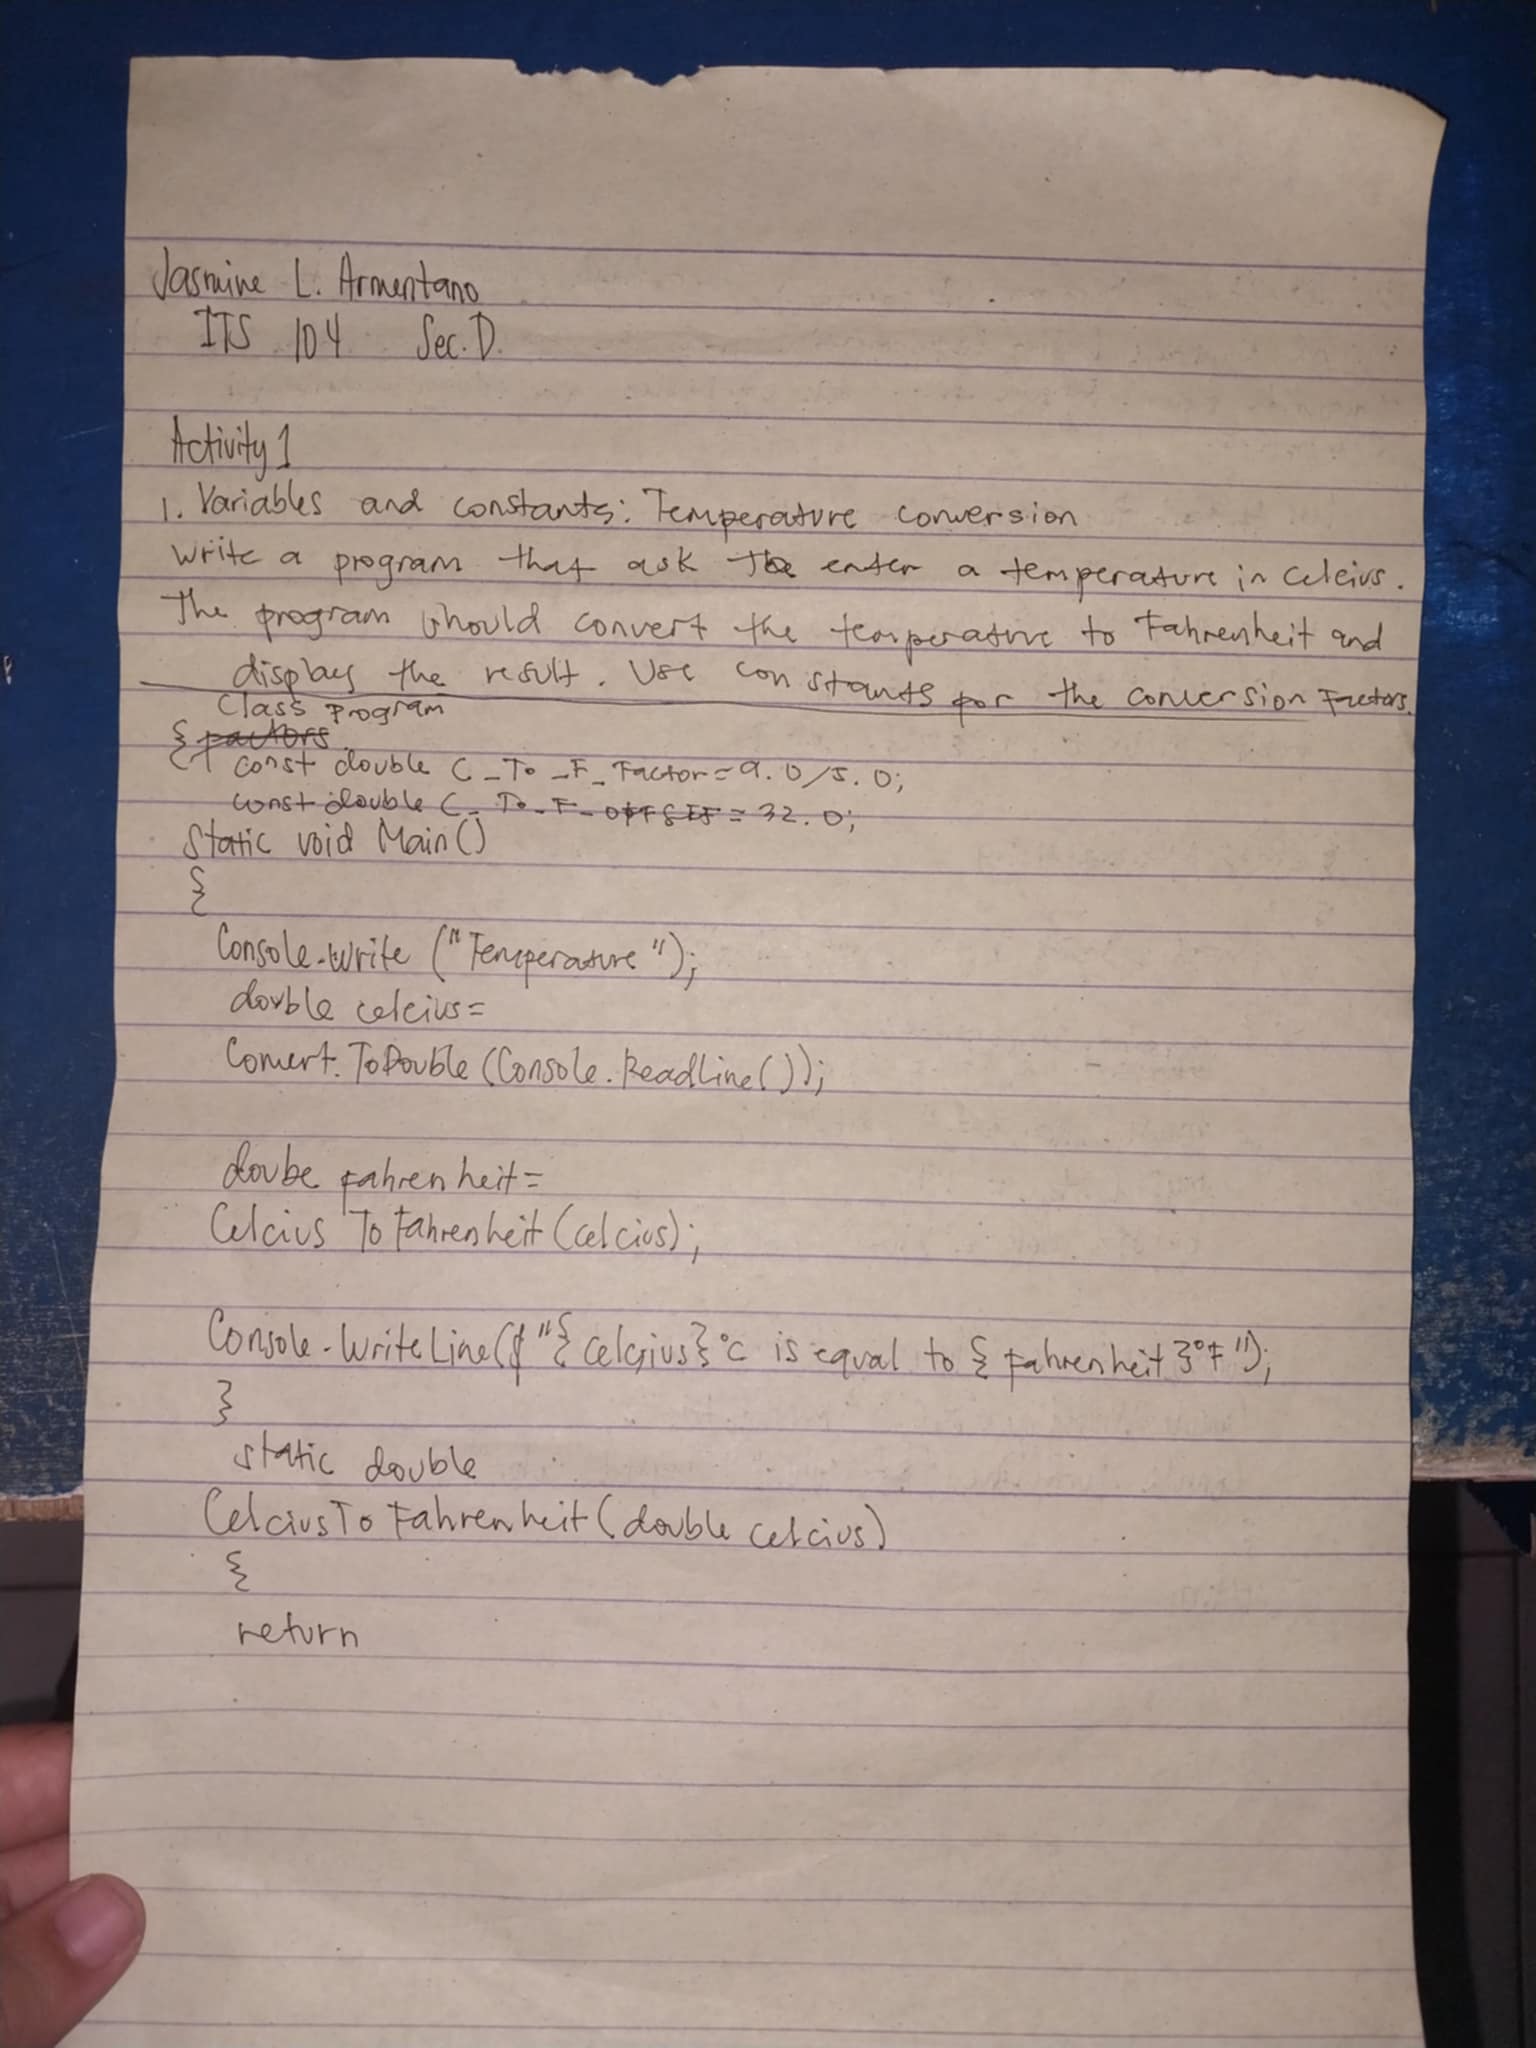 Jasmine L. Armentano
ITS 104 Sec. D.
Activity 1
1. Variables and constants: Temperature conversion
Write a program that ask the enter a temperature in Celcius.
The program should convert the temperature to Fahrenheit and
display the result. Use constants for the conversion Factors.
Class Program
{ factors
const double C_To_F_Factor = 9.0/5.0;
const double C_To_F_offset = 32.0;
Static void Main()
{
Console.Write ("Temperature");
double celcius =
Convert.ToDouble (Console.ReadLine());
doube fahrenheit =
Celcius To Fahrenheit (celcius);
Console.WriteLine($"{celcius}°C is equal to {fahrenheit}°F");
}
static double
CelciusTo Fahrenheit (double celcius)
{
return